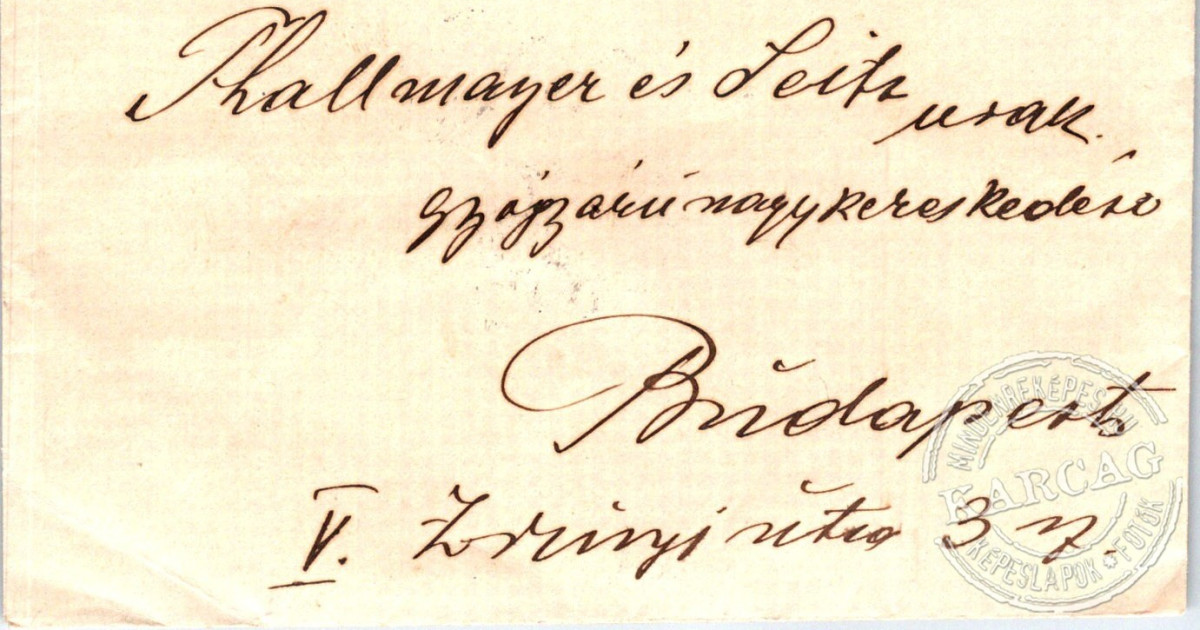 Thallmayer és Seitz urak.
gyógyárú nagykereskedése
Budapest
V. Zrinyi útca 3 sz.
MINDENREKÉPES.HU
KARCAG
KÉPESLAPOK * FOTÓK